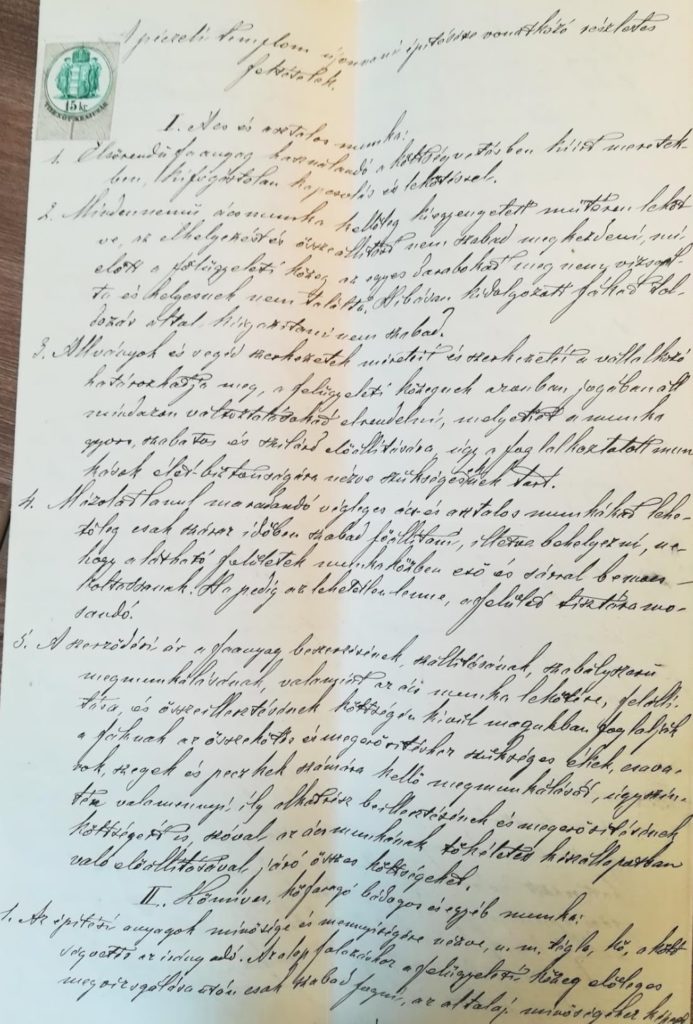 A péczeli templom újonnani építésére vonatkozó részletes
feltételek.
15 kr
TIZENÖT KRAJCZÁR
I. Ács és asztalos munka:
1. Elsőrendű faanyag használandó a költségvetésben kiírt méretek-
ben, kifogástalan kapcsolás és lekötéssel.
2. Mindennemű ácsmunka kellőleg kiegyengetett műtéren leköt-
ve, az elhelyezést és összeállítást nem szabad megkezdeni, mi
előtt a felügyeleti közeg az egyes darabokat meg nem vizsgál-
ta és helyesnek nem találta. Hibásan kidolgozott fákat tol-
dozás által kiigazítani nem szabad.
3. Állványok és segéd szerkezetek méreteit és szerkezetét a vállalkozó
határozhatja meg, a felügyeleti közegnek azonban jogában áll
mindazon változtatásokat elrendelni, melyeket a munka
gyors, szabatos és szilárd előállítására, úgy a foglalkoztatott mun
kások élet-biztonságára nézve szükségesnek tart.
4. Mázolatlanul maradandó végleges ács és asztalos munkákat lehe-
tőleg csak száraz időben szabad főllállítani, illetve behelyezni, ne-
hogy a látható felületek munkaközben eső és sárral bemocs-
koltassanak. Ha pedig az lehetetlen lenne, a felület tisztára mo-
sandó.
5. A szerződési ár a faanyag beszerzésének, szállításának, szabályszerű
megmunkálásának, valamint az ács munka lekötése, felállí-
tása, és összeillesztésének költségén kívül magukban foglalják
a fáknak az összekötés és megerősítéshez szükséges ékek, csava-
rok, szegek és peczkek számára kellő megmunkálását, úgyszin-
tén valamennyi ily alkatrész beillesztésének és megerősítésének
költségét is, szóval, az ácsmunkának tökéletes készállapotban
való előállításával járó összes költségeket.
II. Kőmíves, kőfaragó bádogos és egyéb munka:
1. Az építési anyagok minősége és mennyiségére nézve, u. m. tégla, kő, a költ
ségvetés az irányadó. Az alap falazáshoz a felügyeleti közeg előleges
megvizsgálása után csak szabad fogni, az altalaj minőségéhez képest